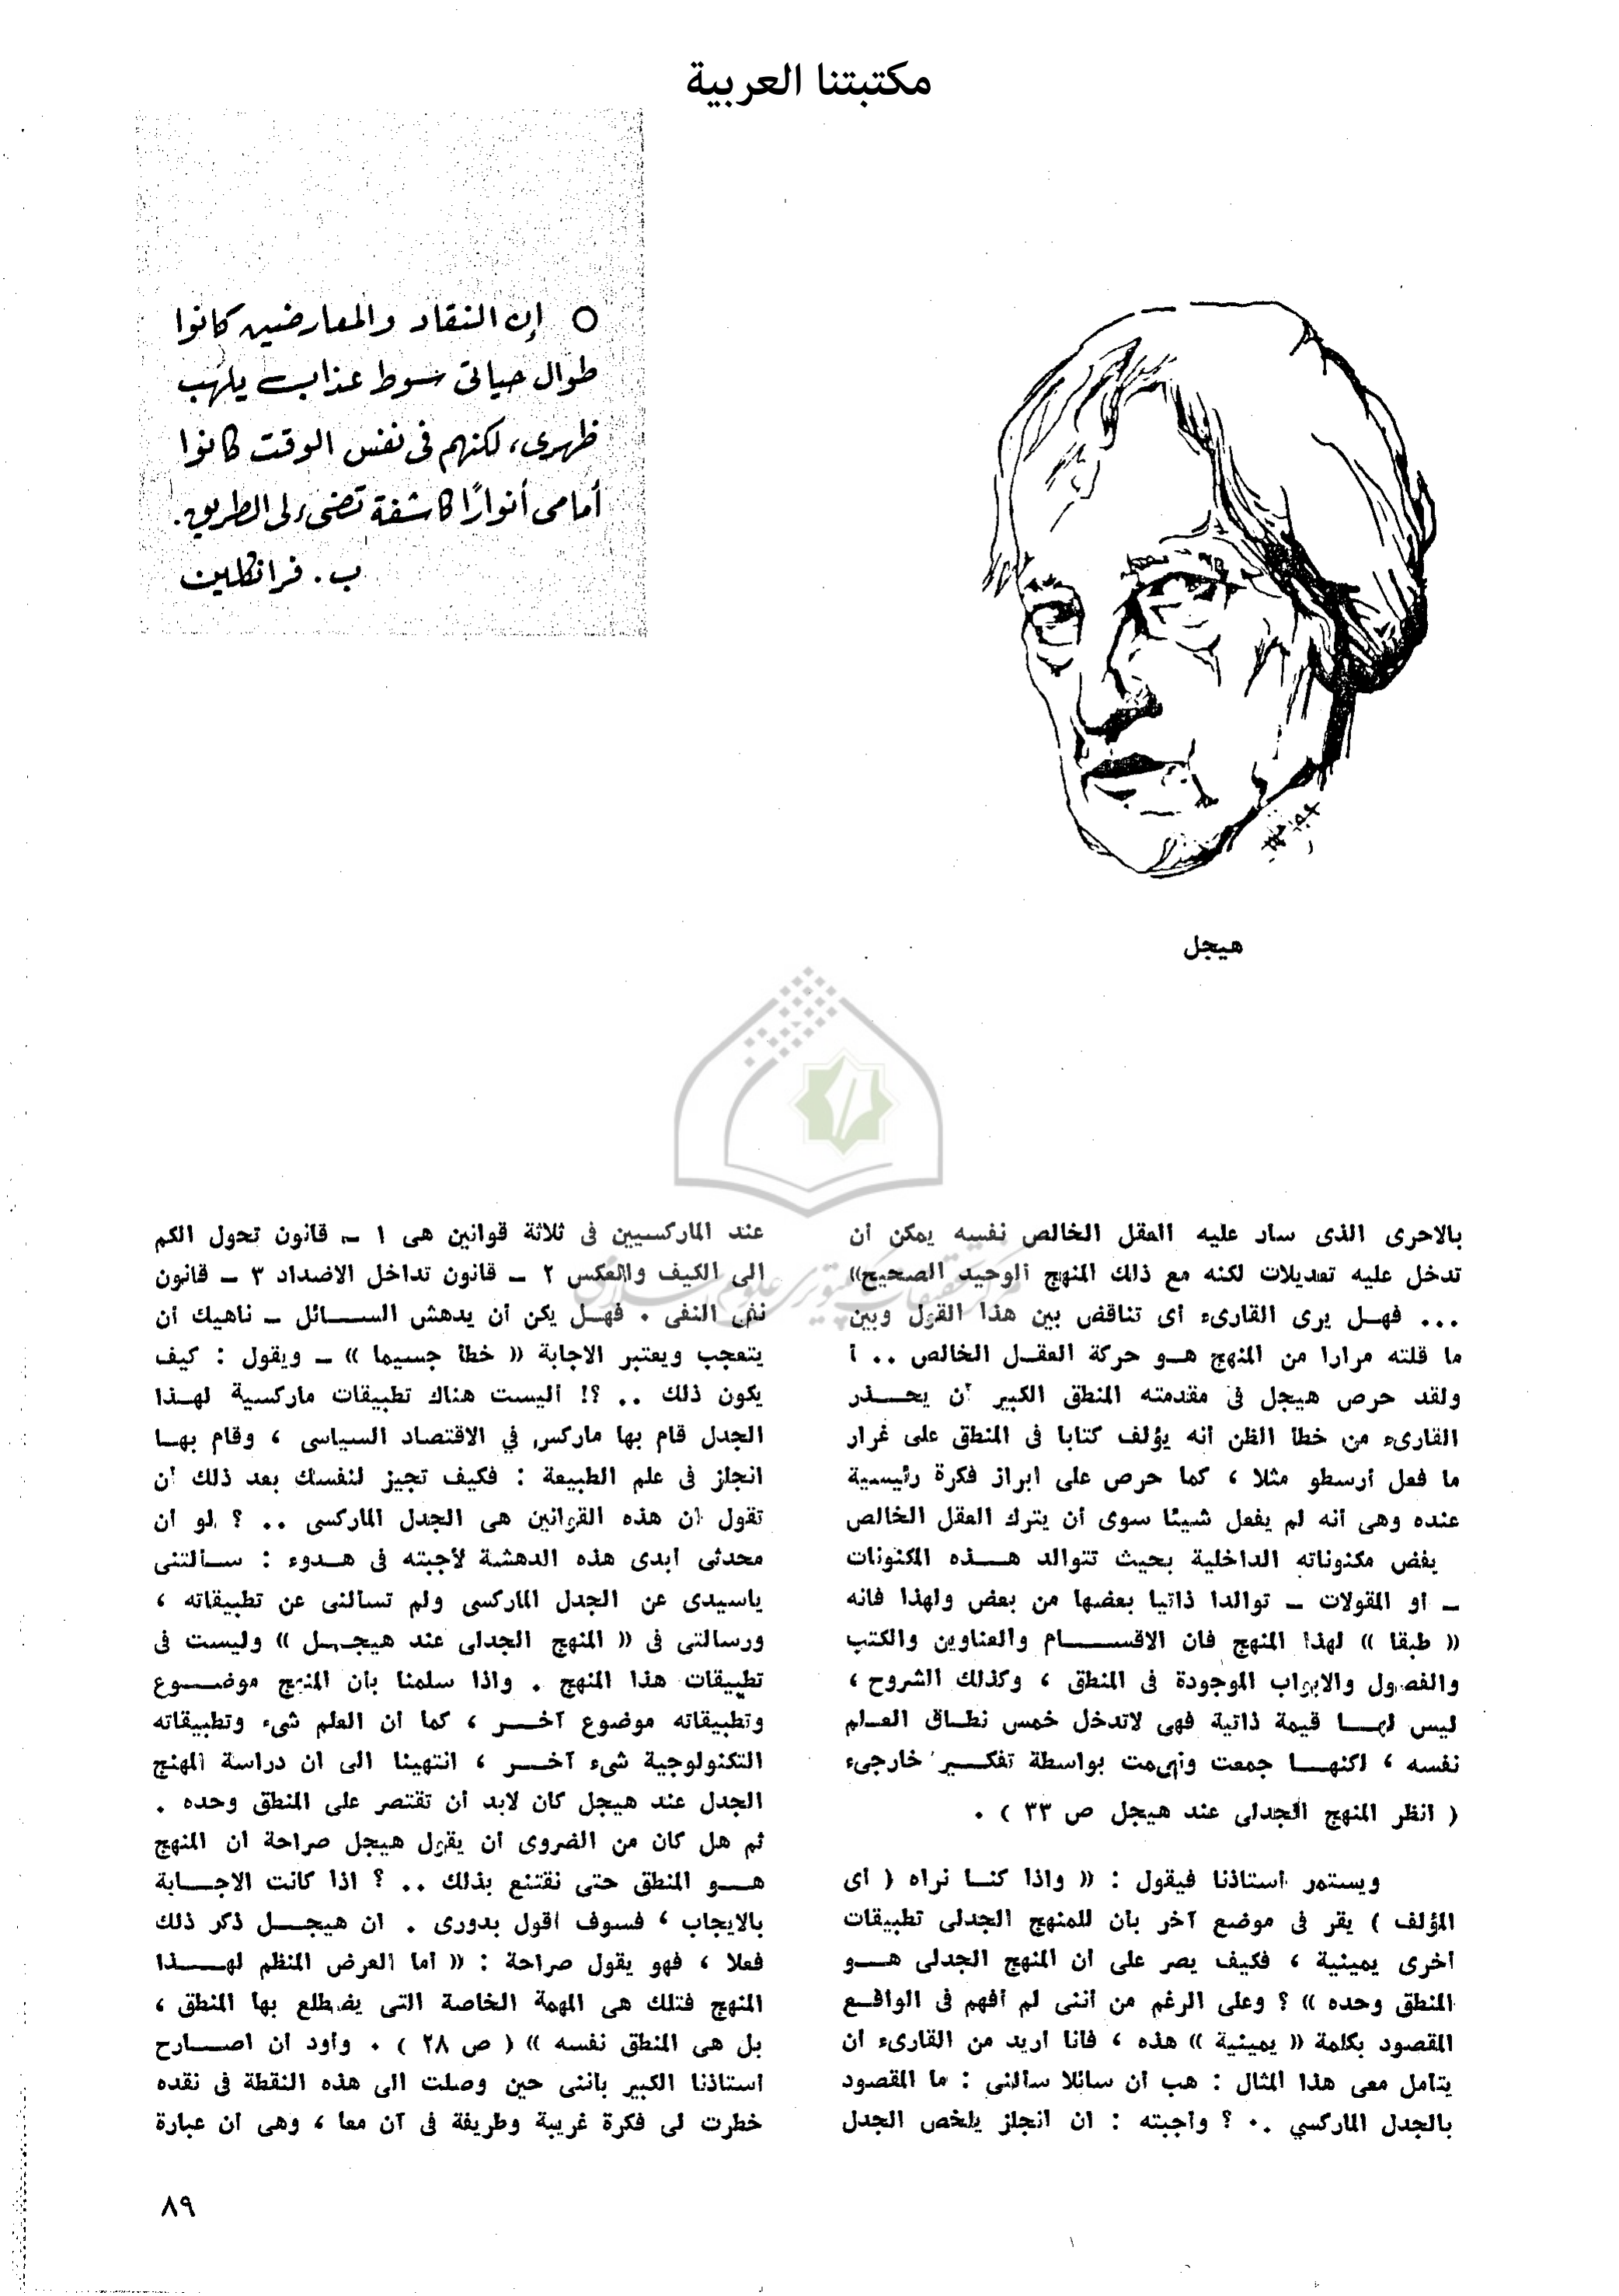 مكتبتنا العربية
○ إن النقاد والمعارضين كانوا
طوال حياتى سوط عذاب يلهب
ظهرى، لكنهم فى نفس الوقت كانوا
أمامى أنوارًا كاشفة تضىء لى الطريق.
ب. فرانكلين
هيجل
بالاحرى الذى سار عليه العقل الخالص نفسه يمكن أن
تدخل عليه تعديلات لكنه مع ذلك المنهج الوحيد الصحيح»
... فهل يرى القارىء أى تناقض بين هذا القول وبين
ما قلته مرارا من المنهج هو حركة العقل الخالص .. أ
ولقد حرص هيجل فى مقدمته المنطق الكبير أن يحذر
القارىء من خطأ الظن أنه يؤلف كتابا فى المنطق على غرار
ما فعل أرسطو مثلا ، كما حرص على ابراز فكرة رئيسية
عنده وهى أنه لم يفعل شيئا سوى أن يترك العقل الخالص
يفض مكنوناته الداخلية بحيث تتوالد هذه المكنونات
ـ أو المقولات ـ توالدا ذاتيا بعضها من بعض ولهذا فانه
« طبقا » لهذا المنهج فان الاقسام والعناوين والكتب
والفصول والابواب الموجودة فى المنطق ، وكذلك الشروح ،
ليس لها قيمة ذاتية فهى لاتدخل خمس نطاق العلم
نفسه ، لكنها جمعت بواسطة تفكير خارجىء
( انظر المنهج الجدلى عند هيجل ص ٣٣ ) .
ويستمر استاذنا فيقول : « واذا كنا نراه ( أى
المؤلف ) يقر فى موضع آخر بأن للمنهج الجدلى تطبيقات
أخرى يمينية ، فكيف يصر على أن المنهج الجدلى هو
المنطق وحده » ؟ وعلى الرغم من أننى لم أفهم فى الواقع
المقصود بكلمة « يمينية » هذه ، فأنا أريد من القارىء أن
يتأمل معى هذا المثال : هب أن سائلا سألنى : ما المقصود
بالجدل الماركسي .. ؟ وأجبته : ان انجلز يلخص الجدل
عند الماركسيين فى ثلاثة قوانين هى ١ ـ قانون تحول الكم
الى الكيف والعكس ٢ ـ قانون تداخل الاضداد ٣ ـ قانون
نفى النفى . فهل يكن أن يدهش السائل ـ ناهيك أن
يتعجب ويعتبر الاجابة « خطأ جسيما » ـ ويقول : كيف
يكون ذلك .. ؟! أليست هناك تطبيقات ماركسية لهذا
الجدل قام بها ماركس في الاقتصاد السياسى ، وقام بها
انجلز فى علم الطبيعة : فكيف تجيز لنفسك بعد ذلك أن
تقول ان هذه القوانين هى الجدل الماركسى .. ؟ لو أن
محدثى أبدى هذه الدهشة لأجبته فى هدوء : سألتنى
ياسيدى عن الجدل الماركسى ولم تسألنى عن تطبيقاته ،
ورسالتى فى « المنهج الجدلى عند هيجل » وليست فى
تطبيقات هذا المنهج . واذا سلمنا بأن المنهج موضوع
وتطبيقاته موضوع آخر ، كما أن العلم شىء وتطبيقاته
التكنولوجية شىء آخر ، انتهينا الى أن دراسة المهنج
الجدل عند هيجل كان لابد أن تقتصر على المنطق وحده .
ثم هل كان من الضروى أن يقول هيجل صراحة أن المنهج
هو المنطق حتى نقتنع بذلك .. ؟ اذا كانت الاجابة
بالايجاب ، فسوف أقول بدورى . ان هيجل ذكر ذلك
فعلا ، فهو يقول صراحة : « أما العرض المنظم لهذا
المنهج فتلك هى المهمة الخاصة التى يضطلع بها المنطق ،
بل هى المنطق نفسه » ( ص ٢٨ ) . وأود أن اصارح
استاذنا الكبير باننى حين وصلت الى هذه النقطة فى نقده
خطرت لى فكرة غريبة وطريفة فى آن معا ، وهى أن عبارة
٨٩